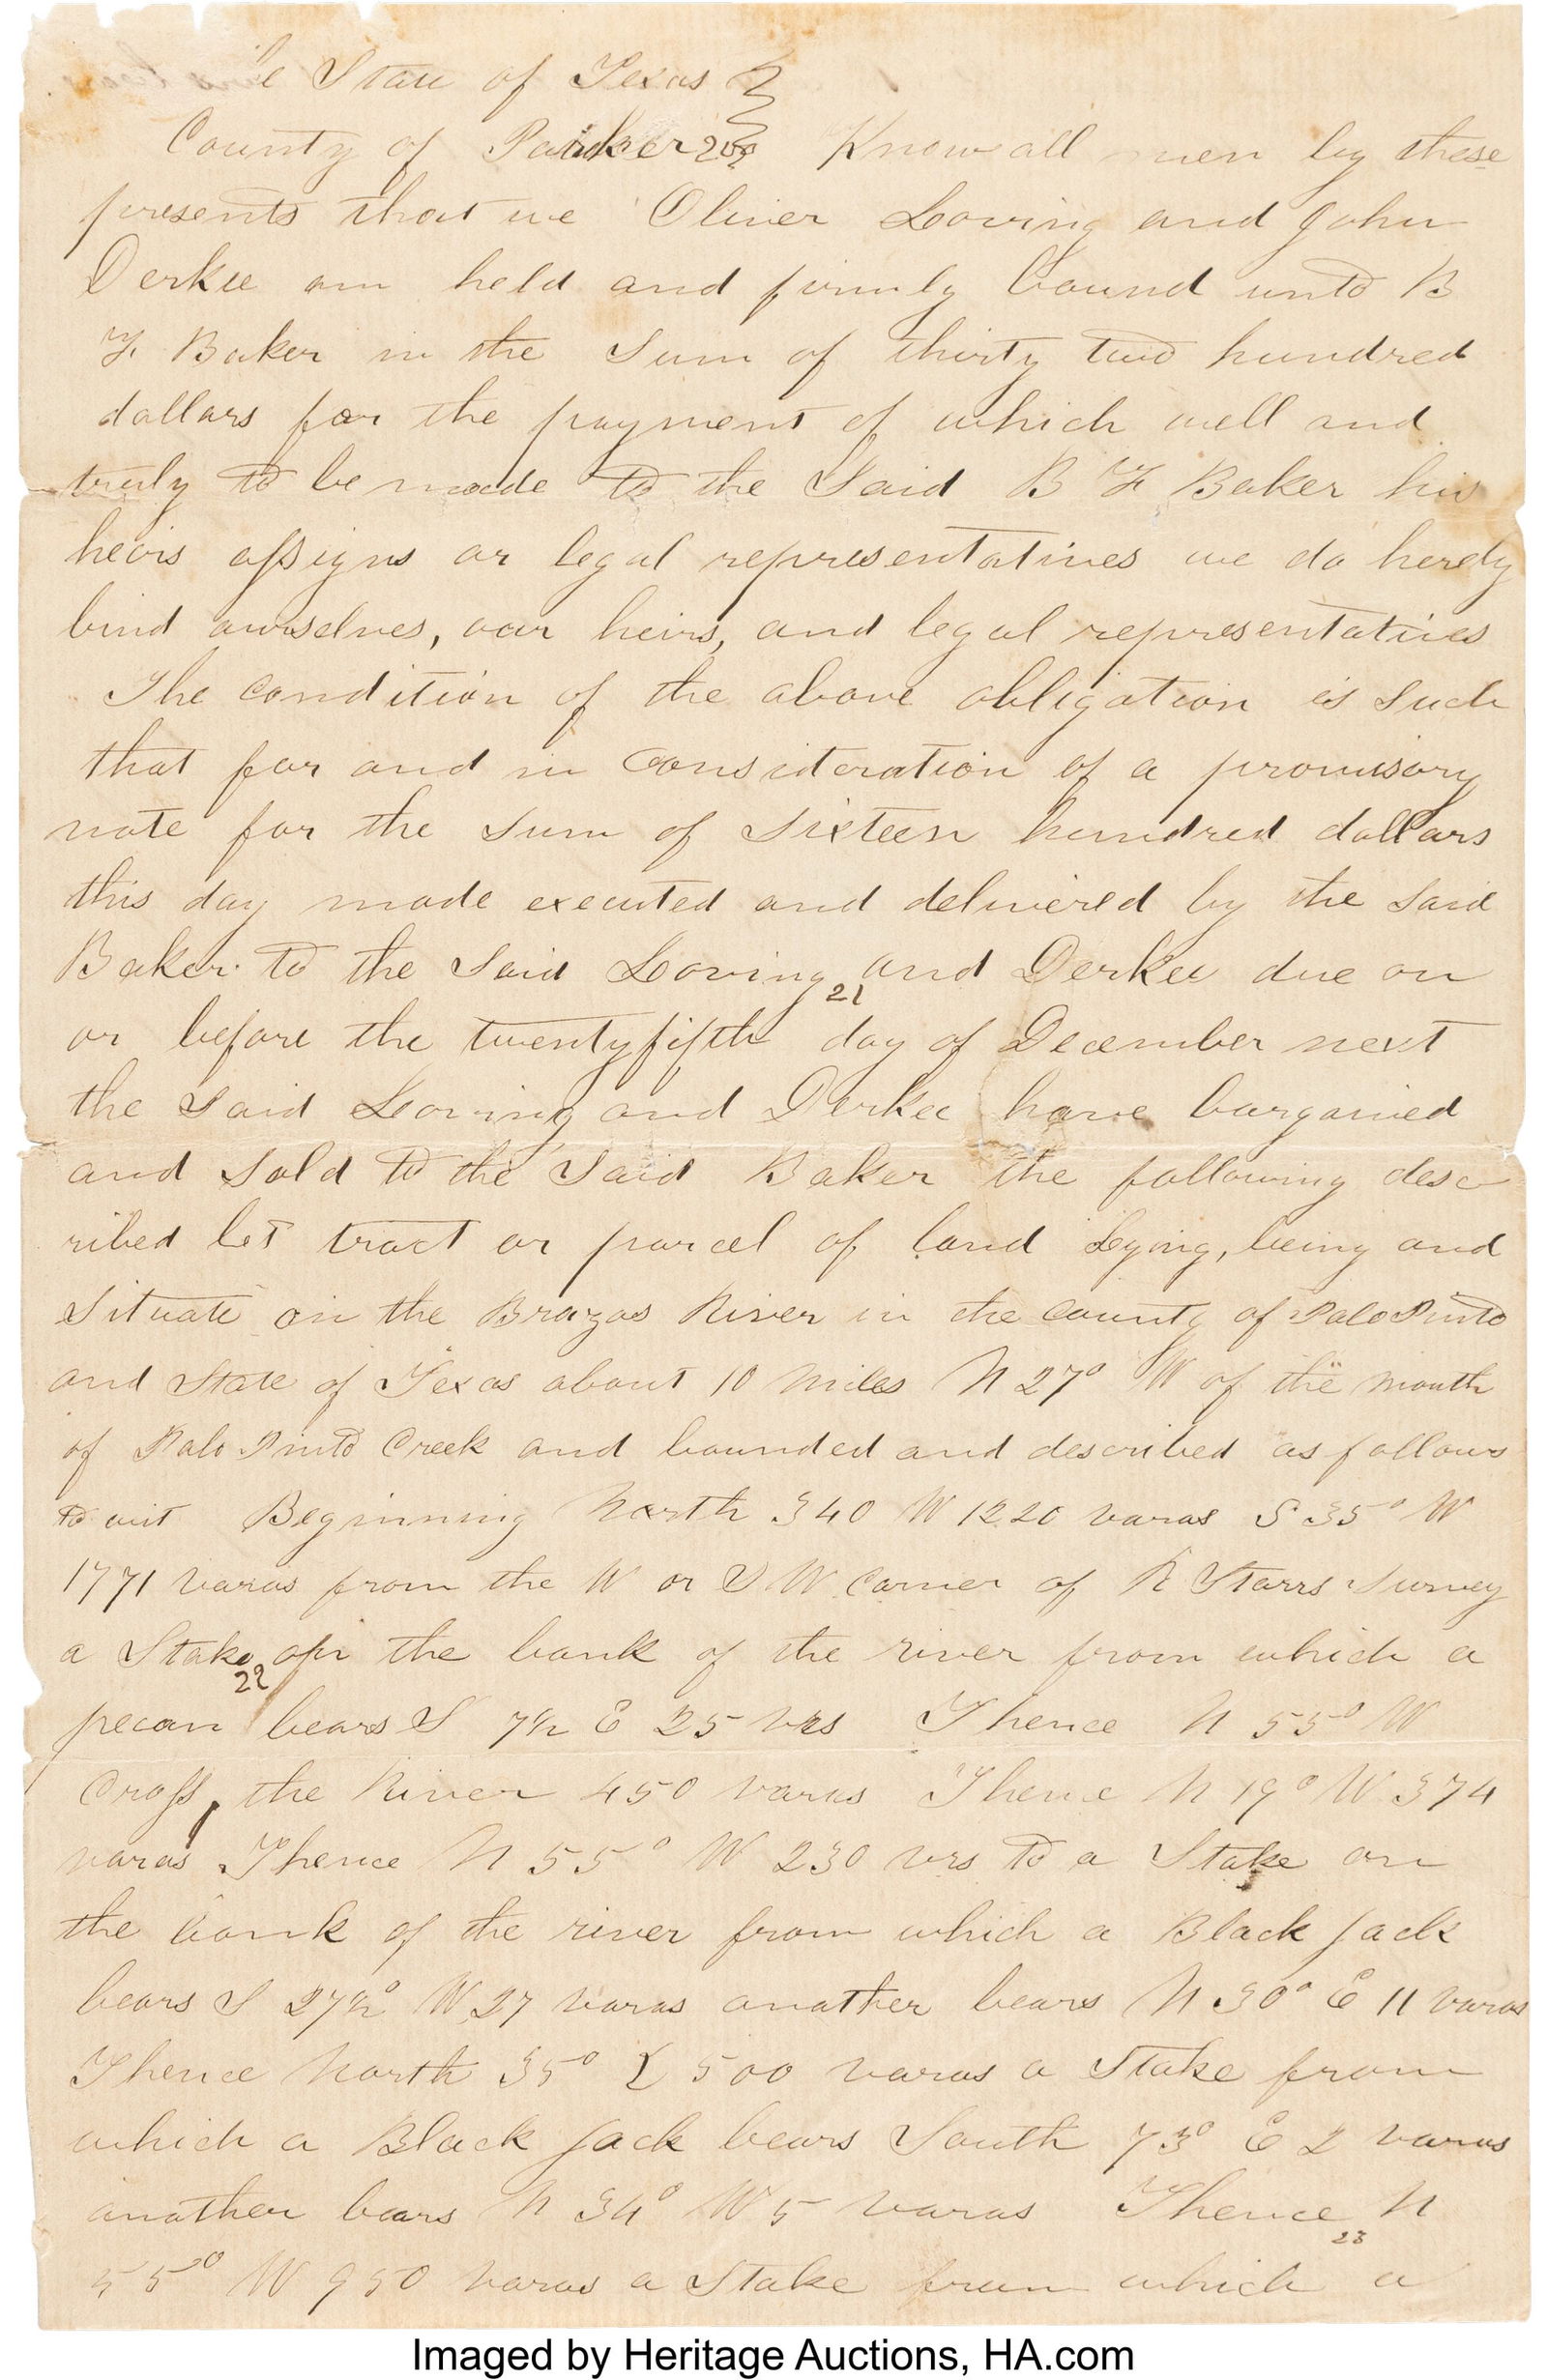 e State of Texas
County of Parker 20 Know all men by these
presents that we Oliver Loving and John
Derkee am held and firmly bound unto B
F. Baker in the Sum of thirty two hundred
dollars for the payment of which well and
truly to be made to the Said B F Baker his
heirs assigns or legal representatives we do hereby
bind ourselves, our heirs, and legal representatives
The condition of the above obligation is Such
that for and in Consideration of a promisory
note for the Sum of Sixteen hundred dollars
this day made executed and delivered by the Said
Baker to the Said Loving and Derkee due on
21
or before the twentyfifth day of December next
the Said Loving and Derkee have bargained
and Sold to the Said Baker the following desc
ribed lot tract or parcel of land Lying, being and
Situate on the Brazos River in the County of Palo Pinto
and State of Texas about 10 Miles N 27° W of the Mouth
of Palo Pinto Creek and bounded and described as follows
to wit Beginning North 340 W 1220 varas S 35° W
1771 varas from the W or S W Corner of R Starrs Survey
a Stake on the bank of the river from which a
22
pecan bears S 7½ E 25 vrs Thence N 55° W
Cross, the River 450 varas Thence N 19° W 374
varas Thence N 55° W 230 vrs to a Stake on
the bank of the river from which a Black Jack
bears S 27½° W 27 varas another bears N 30° E 11 varas
Thence North 35° E 500 varas a Stake from
which a Black Jack bears South 73° E 2 varas
another bears N 34° W 5 varas Thence N
23
55° W 950 varas a Stake from which a
Imaged by Heritage Auctions, HA.com